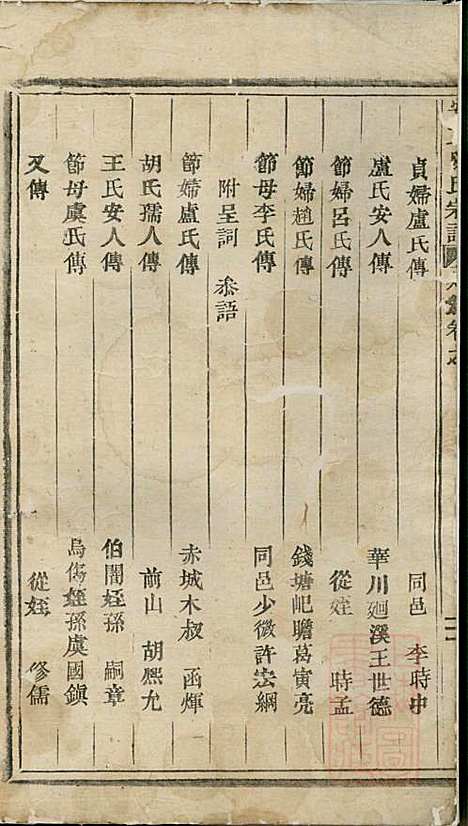 貞婦盧氏傳 同邑 李時中
盧氏安人傳 華川廻溪王世德
節婦呂氏傳 從姪 時孟
節婦趙氏傳 錢塘屺瞻葛寅亮
節母李氏傳 同邑少微許宏綱
附呈詞 叅語
節婦盧氏傳 赤城木叔 函煇
胡氏孺人傳 前山 胡熙允
王氏安人傳 伯闇姪孫 嗣章
節母虞氏傳 烏傷姪孫虞國鎭
又傳 從姪 修儒